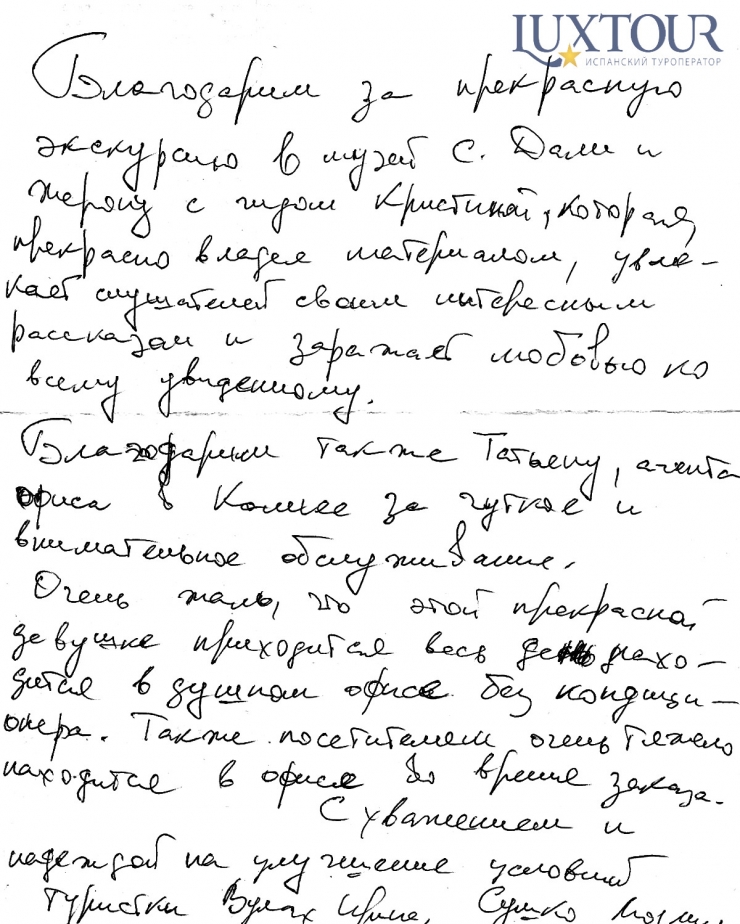 LUXTOUR
ИСПАНСКИЙ ТУРОПЕРАТОР
Благодарим за прекрасную
экскурсию в музей С. Дали и
Жерону с гидом Кристиной, которая,
прекрасно владея материалом, увле-
кает слушателей своим интересным
рассказом и заражает любовью ко
всему увиденному.
Благодарим также Татьяну, агента
офиса в Калелье за чуткое и
внимательное обслуживание.
Очень жаль, что этой прекрасной
девушке приходится весь день нахо-
дится в душном офисе без кондици-
онера. Также посетителям очень тяжело
находится в офисе во время заказа.
С уважением и
надеждой на улучшение условий
Туристки Вулах Ирина,